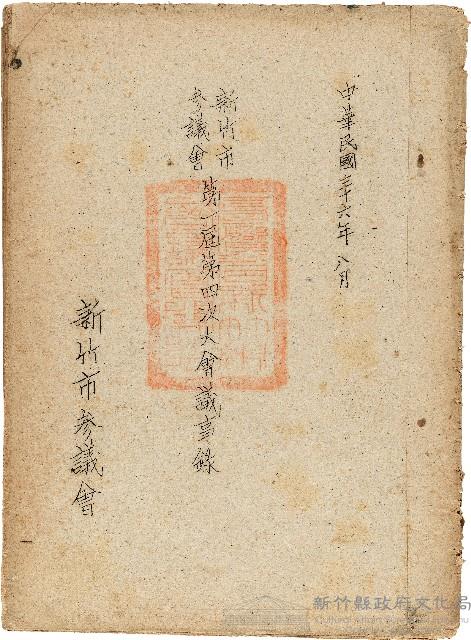 中華民國三十六年八月
新竹市
參議會
第一屆第四次大會議事錄
新竹市參議會
新竹縣政府文化局